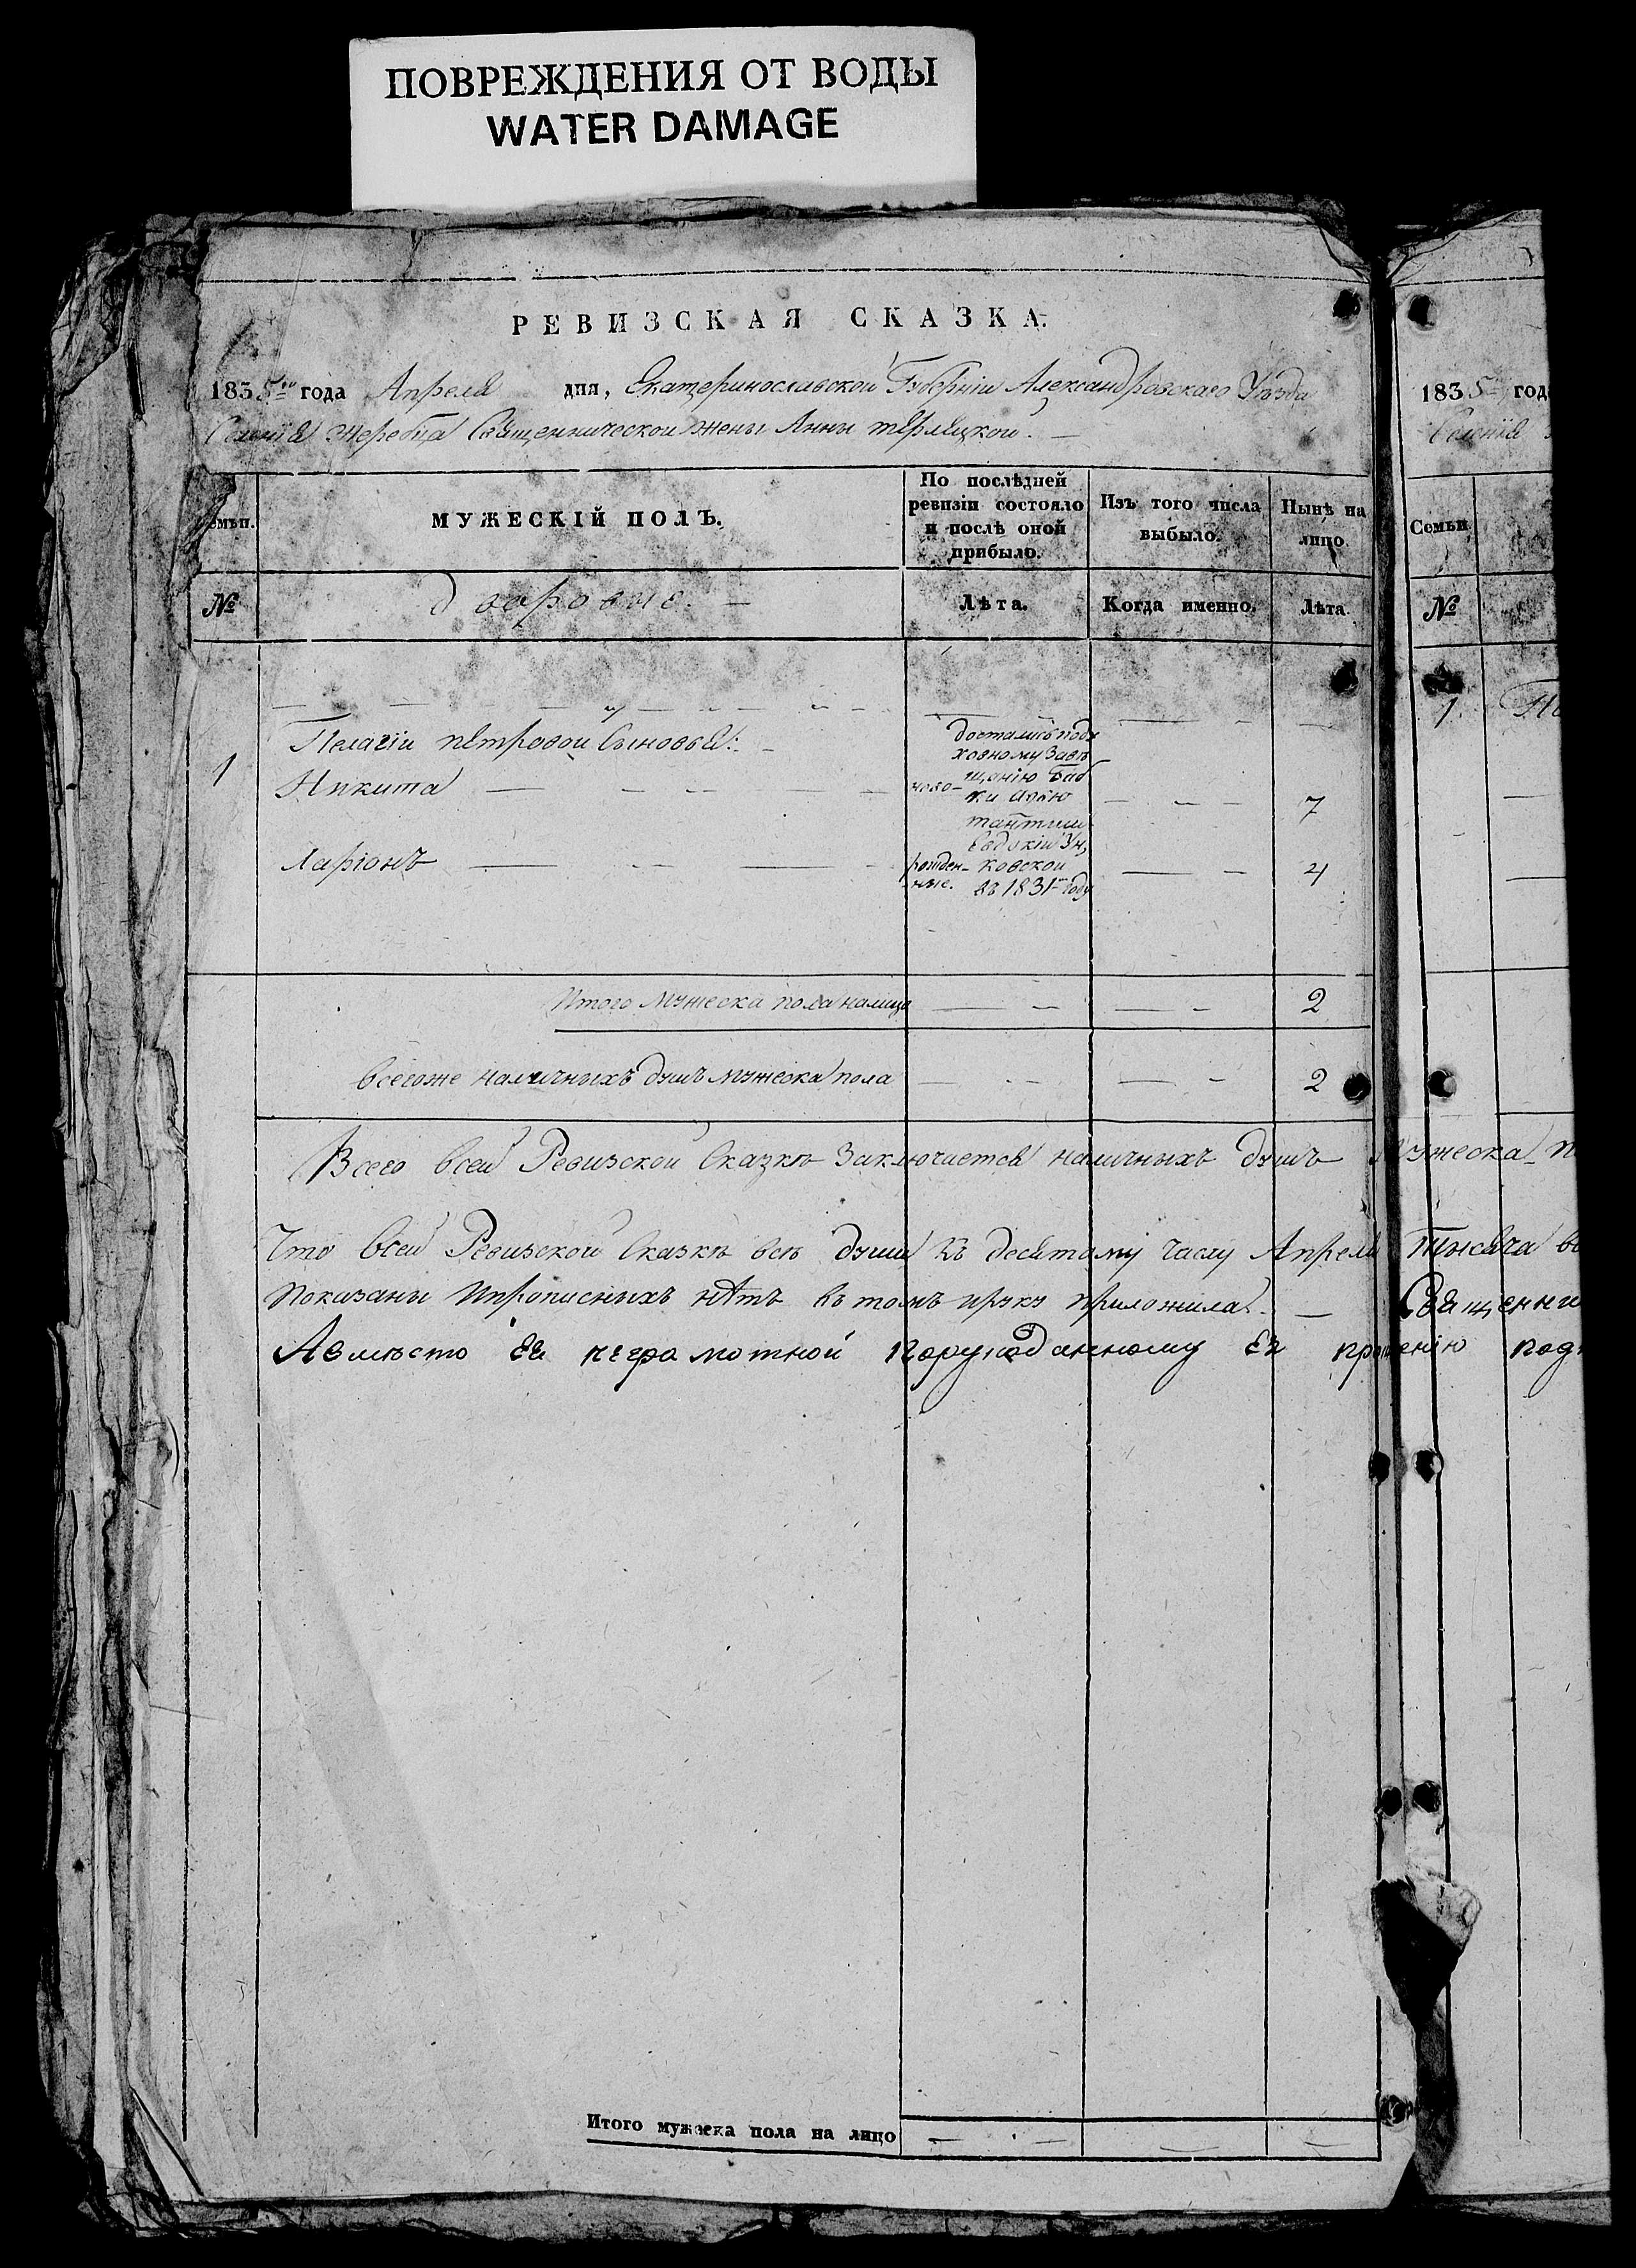 ПОВРЕЖДЕНИЯ ОТ ВОДЫ
WATER DAMAGE
РЕВИЗСКАЯ СКАЗКА.
1835го года Апреля дня, Екатеринославской Губерніи Александровскаго Уѣзда
Селенія Жеребца Священнической жены Анны терлецкой. —
Семьи.
МУЖЕСКІЙ ПОЛЪ.
По послѣдней ревизіи состояло и послѣ оной прибыло.
Изъ того числа выбыло.
Нынѣ на лицо.
№
дворовые. —
Лѣта.
Когда именно.
Лѣта
1
Пелагіи петровой Сыновья:
Никита
ново-
7
Ларіонъ
рожден-
ные.
4
достались подх
ховному завѣ
щанію Баб
ки
Евдокіи
ковской
въ 1831м году
Итого мужеска пола налицо
2
всегоже наличныхъ душъ мужеска пола
2
Всего всей Ревизской Сказкѣ Заключается наличныхъ душъ мужеска п
Что Всей Ревизской Сказкѣ всѣ души къ десятому числу Апреля Тысяча в
показаны ипрописныхъ нѣтъ вътомъ ируку приложила. — Священни
Авмѣсто Ея неграмотной порукоданному Ея прошенію под
Итого мужеска пола на лицо
1835го год
Селенія
Семьи
№
1.